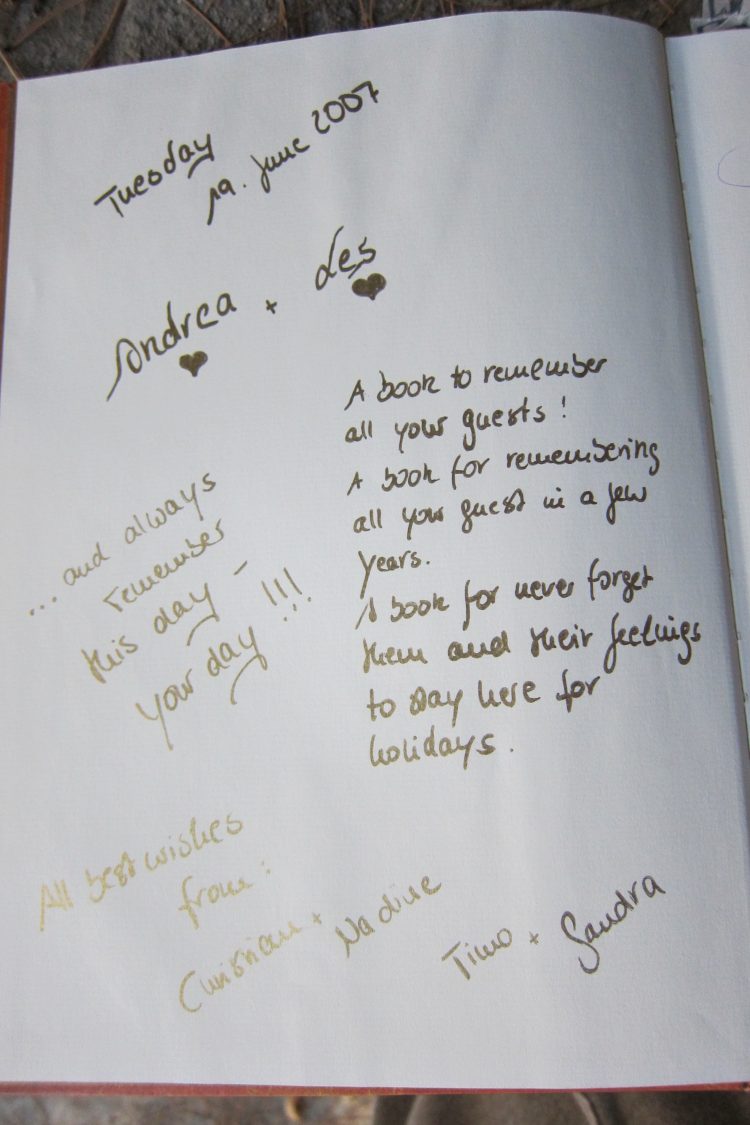 Tuesday
19. June 2007
Andrea + Les
A book to remember
all your guests!
A book for remembering
all your guest in a few
years.
A book for never forget
them and their feelings
to stay here for
holidays.
...and always
remember
this day -
your day !!!
All best wishes
from:
Christian + Nadine
Timo + Sandra